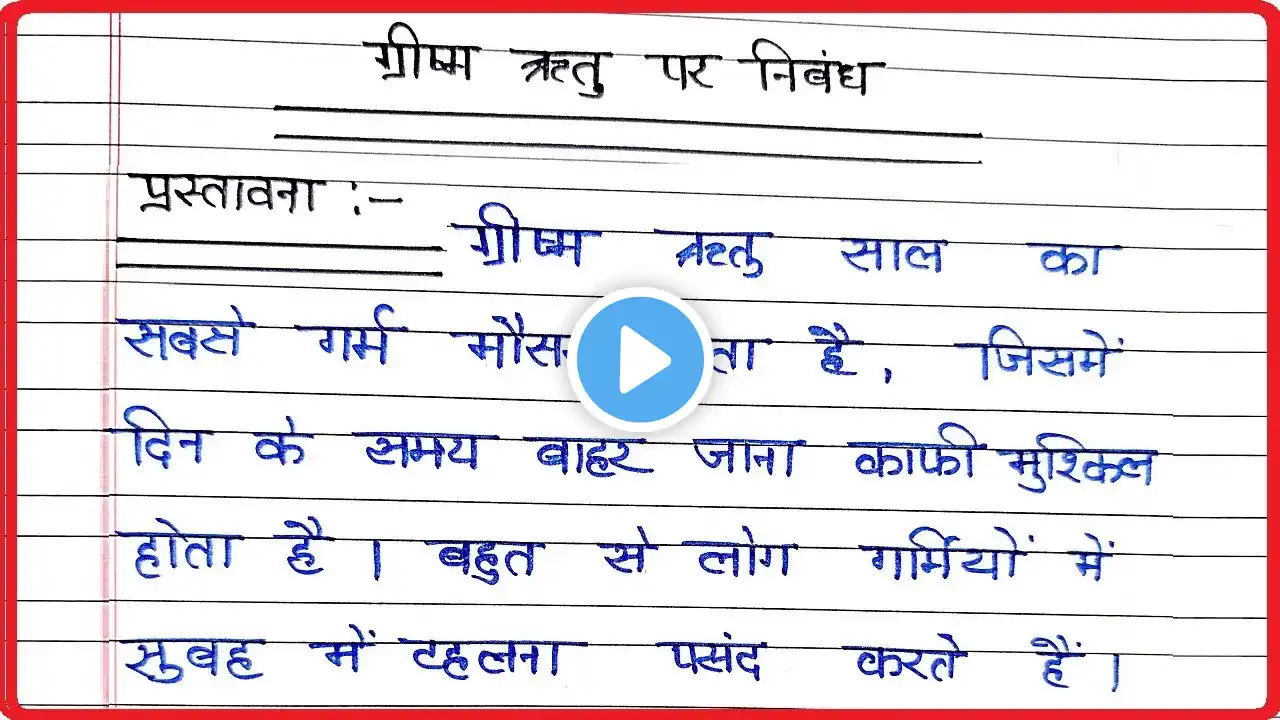 ग्रीष्म ऋतु पर निबंध
प्रस्तावना :-
ग्रीष्म ऋतु साल का
सबसे गर्म है, जिसमें
दिन के समय बाहर जाना काफी मुश्किल
होता है । बहुत से लोग गर्मियों में
सुबह में टहलना पसंद करते हैं ।